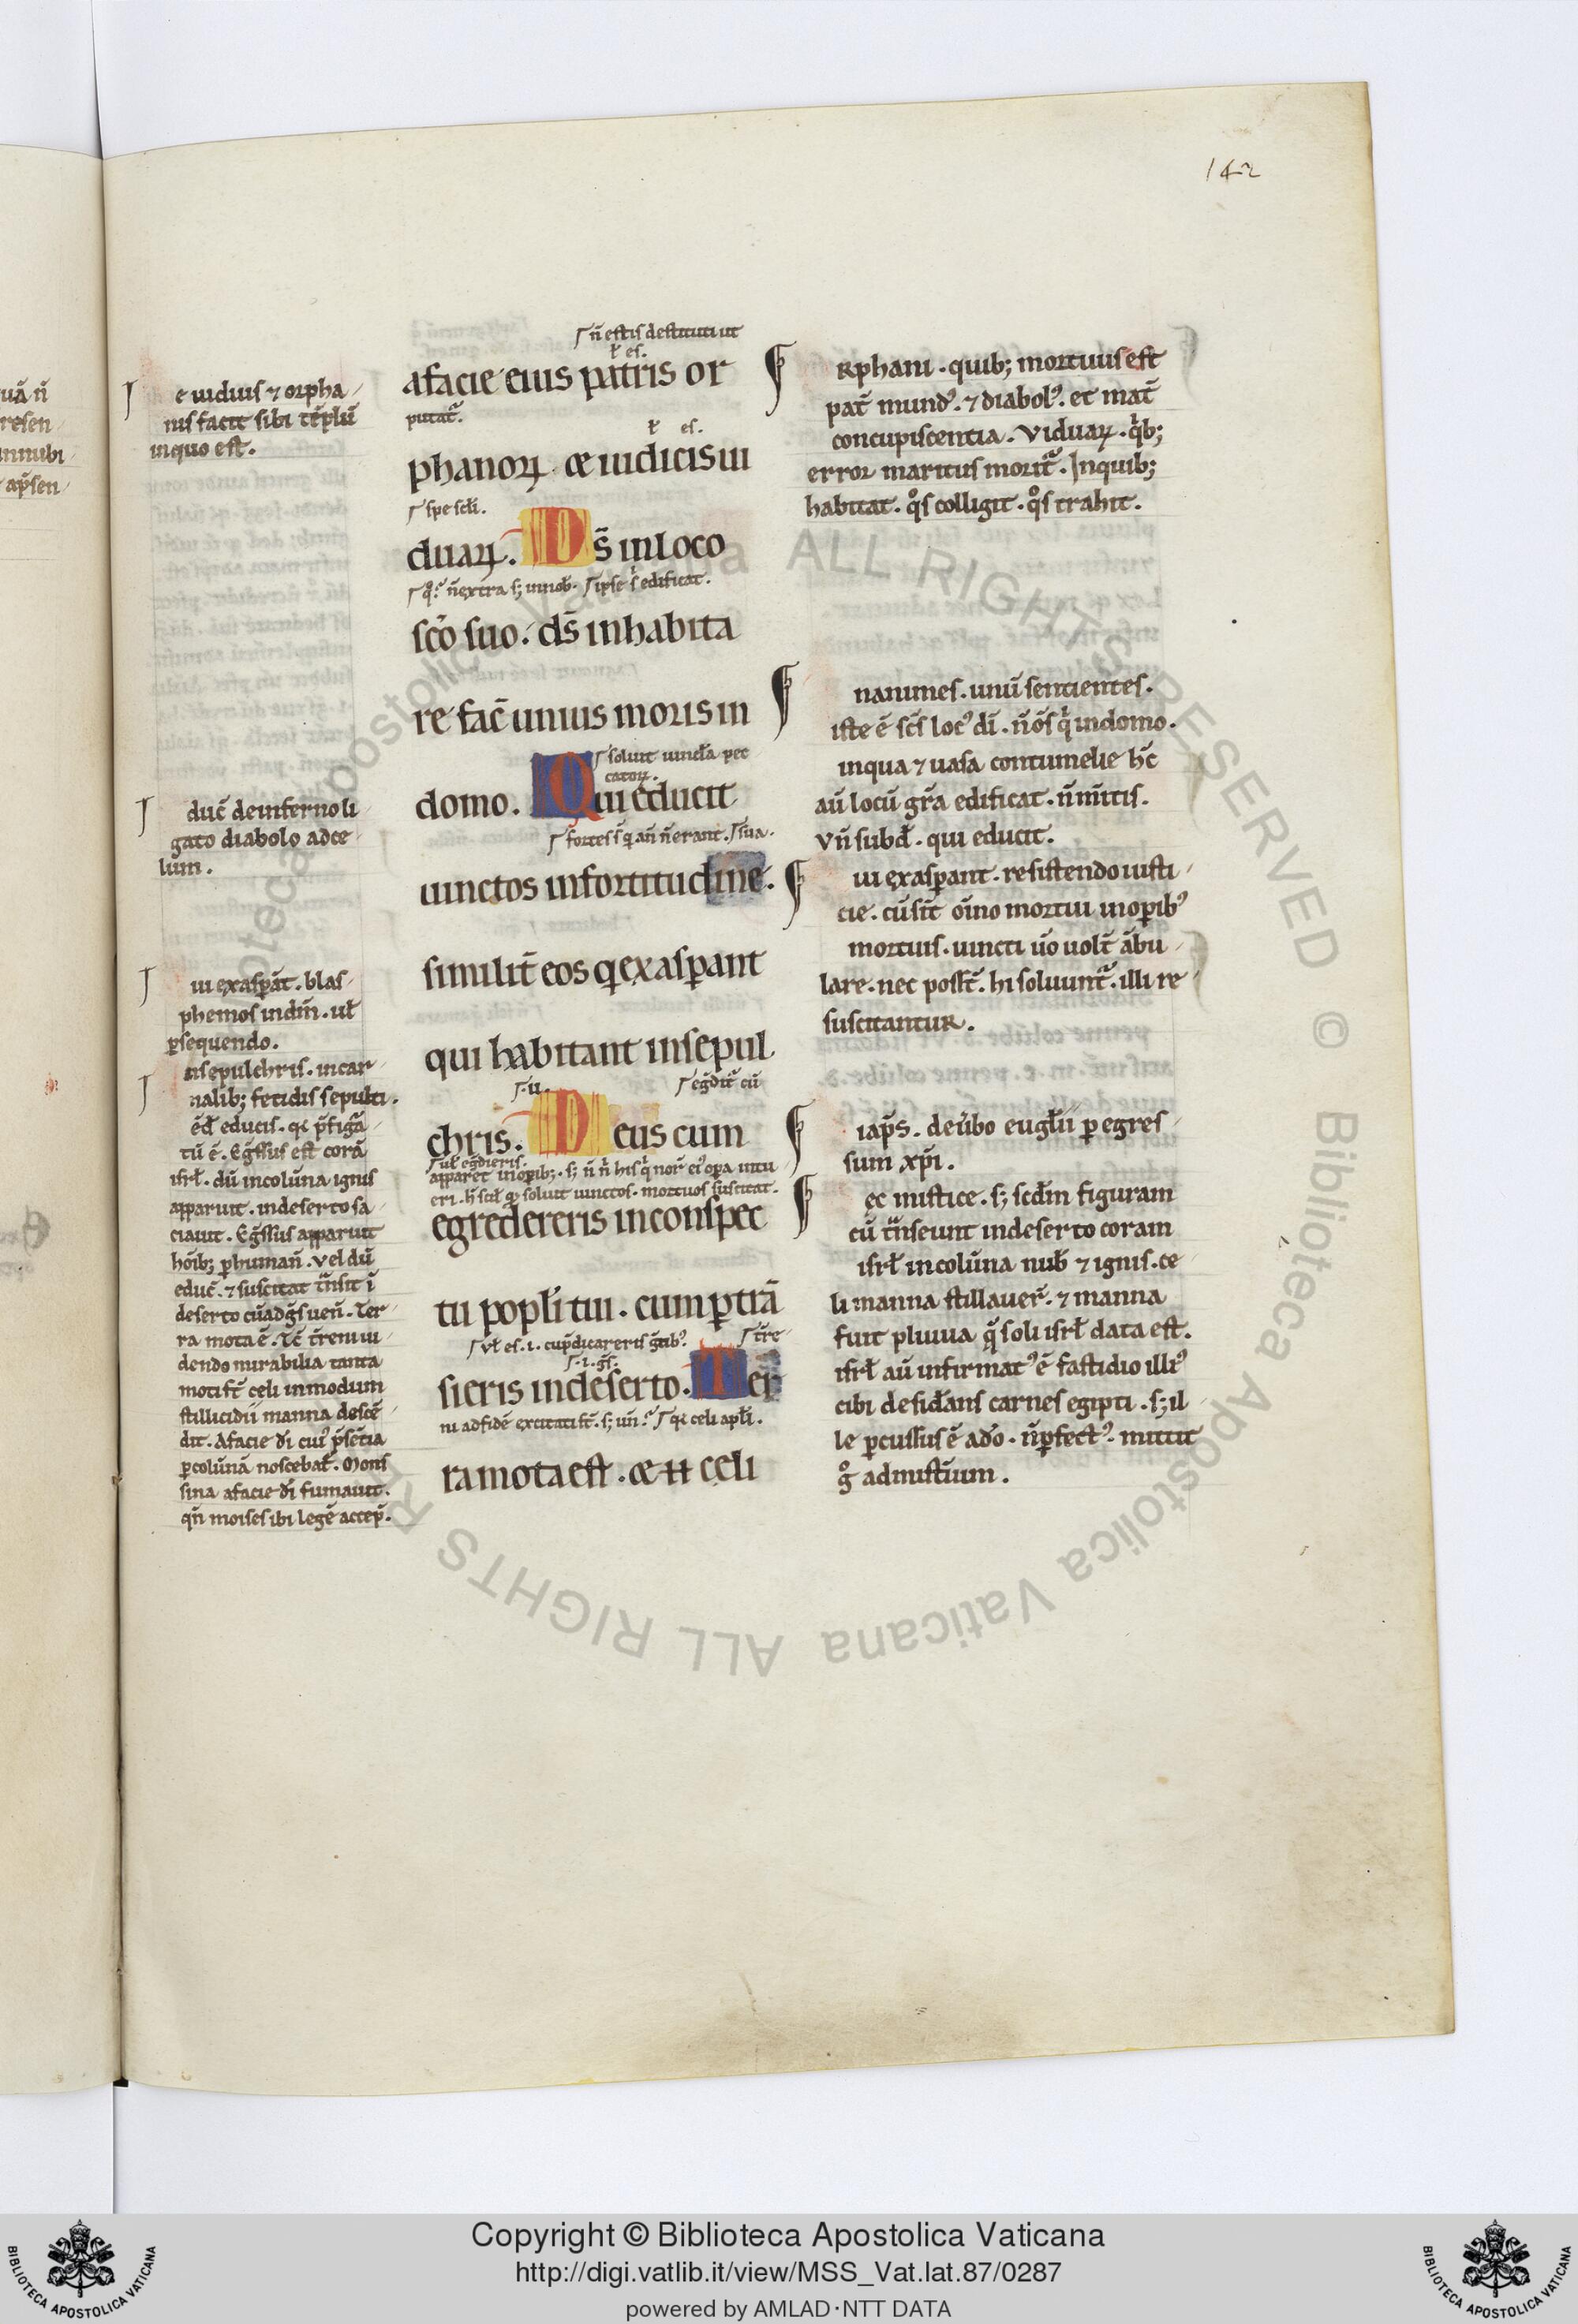 142
e uiduis ⁊ orpha
nis facit sibi tēplū
in quo est.
duc̄ de inferno li
gato diabolo ad ce
lum.
ui exasꝑāt. blas
phemos in dm̄. uł
ꝑsequendo.
n sepulchris. in car
nalib; fetidis sepulti.
ēđ educis. qꝛ p̄figa
tū ē. Eg̃ssus est corā
isrł. dū in colūna ignis
apparuit. in deserto sa
ciauit. Eg̃ssus apparuit
hōib; ꝑ humañ. vel dū
educ̄. ⁊ suscitat t̃nsit ī
deserto cū ad g̃s ueñ. Ter
ra mota ē. Tc̄ t̃reni ui
dendo mirabilia tanta
moti st̄ celi in modum
stillicidii manna descē
dit. A facie di cui᷒ p̄sētia
ꝑ colūnā noscebat̃. Mons
sina a facie di fumauit.
qñ moises ibi legē accep̄.
n̄ estis destituti ut
ł es.
a facie eius patris or
putat̃.
ł es.
phanoꝝ. & iudicis ui
spe scłi.
duaꝝ. Ds̄ in loco
n̄ extra s; in nob̄. ipse s̄ edificat.
scō suo. ds̄ inhabita
re fac̄ unius moris in
soluit uincła pec
catoꝝ.
domo. Qui educit
fortes qꝛ añ n̄ erant. sua.
uinctos in fortitudine.
similit̄ eos q exasꝑant
qui habitant in sepul
.u. eg̃dit̃ cū
chris. Deus cum
uł eg̃dieris.
apparet in oꝑib;. s; n̄ n̄ his q nor̄ ei᷒ oꝑa intu
eri. soluit uinctos. mortuos suscitat.
egredereris in conspec
tu popłi tui. cum ꝑtrā
vł es .i. cū p̄dicareris g̃tib᷒. t̃re
.i. g̃s.
sieris in deserto. Ter
ni ad fidē excitati st̄. s; uñ. qꝛ celi apłi.
ra mota est. & ̄ celi
Rphani. quib; mortuus est
pat̄ mund᷒. ⁊ diabol᷒. et mat̄
concupiscentia. Viduaꝝ. qͥb;
error maritus morit̃. In quib;
habitat. qͦs colligit. qͦs trahit.
nanimes. unū sentientes.
iste ē scs̄ loc᷒ di. n̄ ōs qͥ in domo.
in qua ⁊ uasa contumelie hc̄
aū locū gr̃a edificat. n̄ m̄itis.
Vñ subđ. qui educit.
ui exasꝑant. resistendo iusti
cie. cū sīt oīno mortui in oꝑib᷒
mortuis. uincti ūo uolt̄ ābu
lare. nec post̄. hi soluunt̃. illi re
suscitantur.
iap̄s. de ūbo eugłii ꝑ egres
sum xp̄i.
ec mistice. s; scd̄m figuram
cū t̃nseunt in deserto coram
isrł in colūna nub̄ ⁊ ignis. ce
li manna stillauer̄. ⁊ manna
fuit pluuia q̃ soli isrł data est.
isrł aū infirmat᷒ ē fastidio illi᷒
cibi desid̄ans carnes egipti. s; il
le ꝑcussus ē a dō. n̄ ꝑfect᷒. mittit
gͦ ad mistium.
Copyright © Biblioteca Apostolica Vaticana
http://digi.vatlib.it/view/MSS_Vat.lat.87/0287
powered by AMLAD·NTT DATA